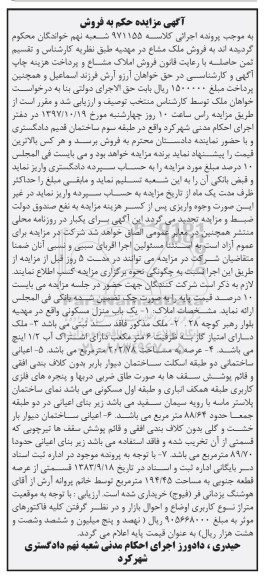 آگهی مزایده حکم به فروش
به موجب پرونده اجرائی کلاسه ۹۷۱۱۵۵ شعبه نهم خواندگان محکوم
گردیده اند به فروش ملک مشاع در مهدیه طبق نظریه کارشناس و تقسیم
ثمن حاصله با رعایت قانون فروش املاک مشاع و پرداخت هزینه چاپ
آگهی و کارشناسی در حق خواهان آرزو آرش فرزند اسماعیل و همچنین
پرداخت مبلغ ۱۵۰۰۰۰۰ ریال بابت حق الاجرای دولتی بنا به درخواست
خواهان ملک توسط کارشناس منتخب توصیف و ارزیابی شد و مقرر است از
طریق مزایده راس ساعت ۱۰ روز چهارشنبه مورخ ۱۳۹۷/۱۰/۱۹ در دفتر
اجرای احکام مدنی شهرکرد واقع در طبقه سوم ساختمان قدیم دادگستری
و با حضور نماینده دادستان محترم به فروش برسد و هر کس بالاترین
قیمت را پیشنهاد نماید برنده مزایده خواهد بود و می بایست فی المجلس
۱۰ درصد مبلغ مورد مزایده را به حساب سپرده دادگستری واریز نماید
و قبض بانکی آن را به این قسمت تسلیم نماید و مابقی مبلغ را حداکثر
ظرف مدت یک ماه از تاریخ مزایده به حساب سپرده واریز نماید در غیر
اینصورت وجوه واریزی پس از کسر هزینه مزایده به نفع صندوق دولت
ضبط و مزایده تجدید می گردد این آگهی برای یکبار در روزنامه محلی
منتشر همچنین در معابر عمومی الصاق خواهد شد شرکت در مزایده برای
عموم آزاد است به استثنا مسئولین اجرا اقربای سببی و نسبی آنان ضمنا
متقاضیان شرکت در مزایده می توانند در مدت ۵ روز قبل از مزایده از
طریق این اجرا نسبت به چگونگی نحوه برگزاری مزایده کسب اطلاع نمایند.
لازم به ذکر است شرکت کنندگان جهت حضور در جلسه مزایده می بایست
۱۰ درصد قیمت پایه را به صورت چک تضمین شده بانکی فی المجلس
ارائه نماید. مشخصات املاک ۱- یک باب منزل مسکونی واقع در مهدیه
بلوار رهبر کوچه ۲۸ . ۲- ملک مذکور فاقد سند ثبتی می باشد ۳- ملک
دارای امتیاز گاز به ظرفیت ۶ مترمکعب دارای اشتراک آب ۱/۲ اینچ
می باشد. ۴- عرصه به مساحت ۲۰۲/۷۸ مترمربع می باشد. ۵- اعیانی
ساختمانی دو طبقه اسکلت ساختمان دیوار باربر بدون کلاف بندی افقی
و قائم پوشش سقف ها به صورت طاق ضربی دربها و پنجره های فلزی
کاربری طبقه همکف انباری و طبقه اول مسکونی می باشد نمای ساختمان
پلاستر ماسه با رویه سیمان سفید می باشد زیر بنای اعیانی در دو طبقه
جمعا حدود ۸۸/۶۴ متر مربع می باشد. ۶- اعیانی ساختمان دیوار بار
خشت و گلی بدون کلاف بندی افقی و قائم پوشش سقف ها تیرچوبی که
قسمتی از آن تخریب شده و فاقد استفاده می باشد زیر بنای اعیانی حدودا
۸۹/۷۰ مترمربع می باشد. ۷- با توجه به پرونده موجود در اداره ثبت اسناد
در بایگانی اداره ثبت و اسناد در تاریخ ۱۳۸۳/۹/۱۸ قسمتی از عرصه
قطعه جنوبی به مساحت ۱۹۴/۴۵ مترمربع توسط خانم پروانه آرش از آقای
هوشنگ یزدانی فر (فیوج) خریداری شده است. ارزیابی : با توجه به موقعیت
متراژ نوع کاربری اوضاع و احوال بازار و در نظر گرفتن کلیه فاکتورهای
موثر به مبلغ ۹۰۵۶۶۸۰۰۰ ریال ( نهصد و پنج میلیون و ششصد وشصت و
هشت هزار ریال) به عنوان قیمت پایه اعلام می گردد.
حیدری ، دادورز اجرای احکام مدنی شعبه نهم دادگستری
شهرکرد